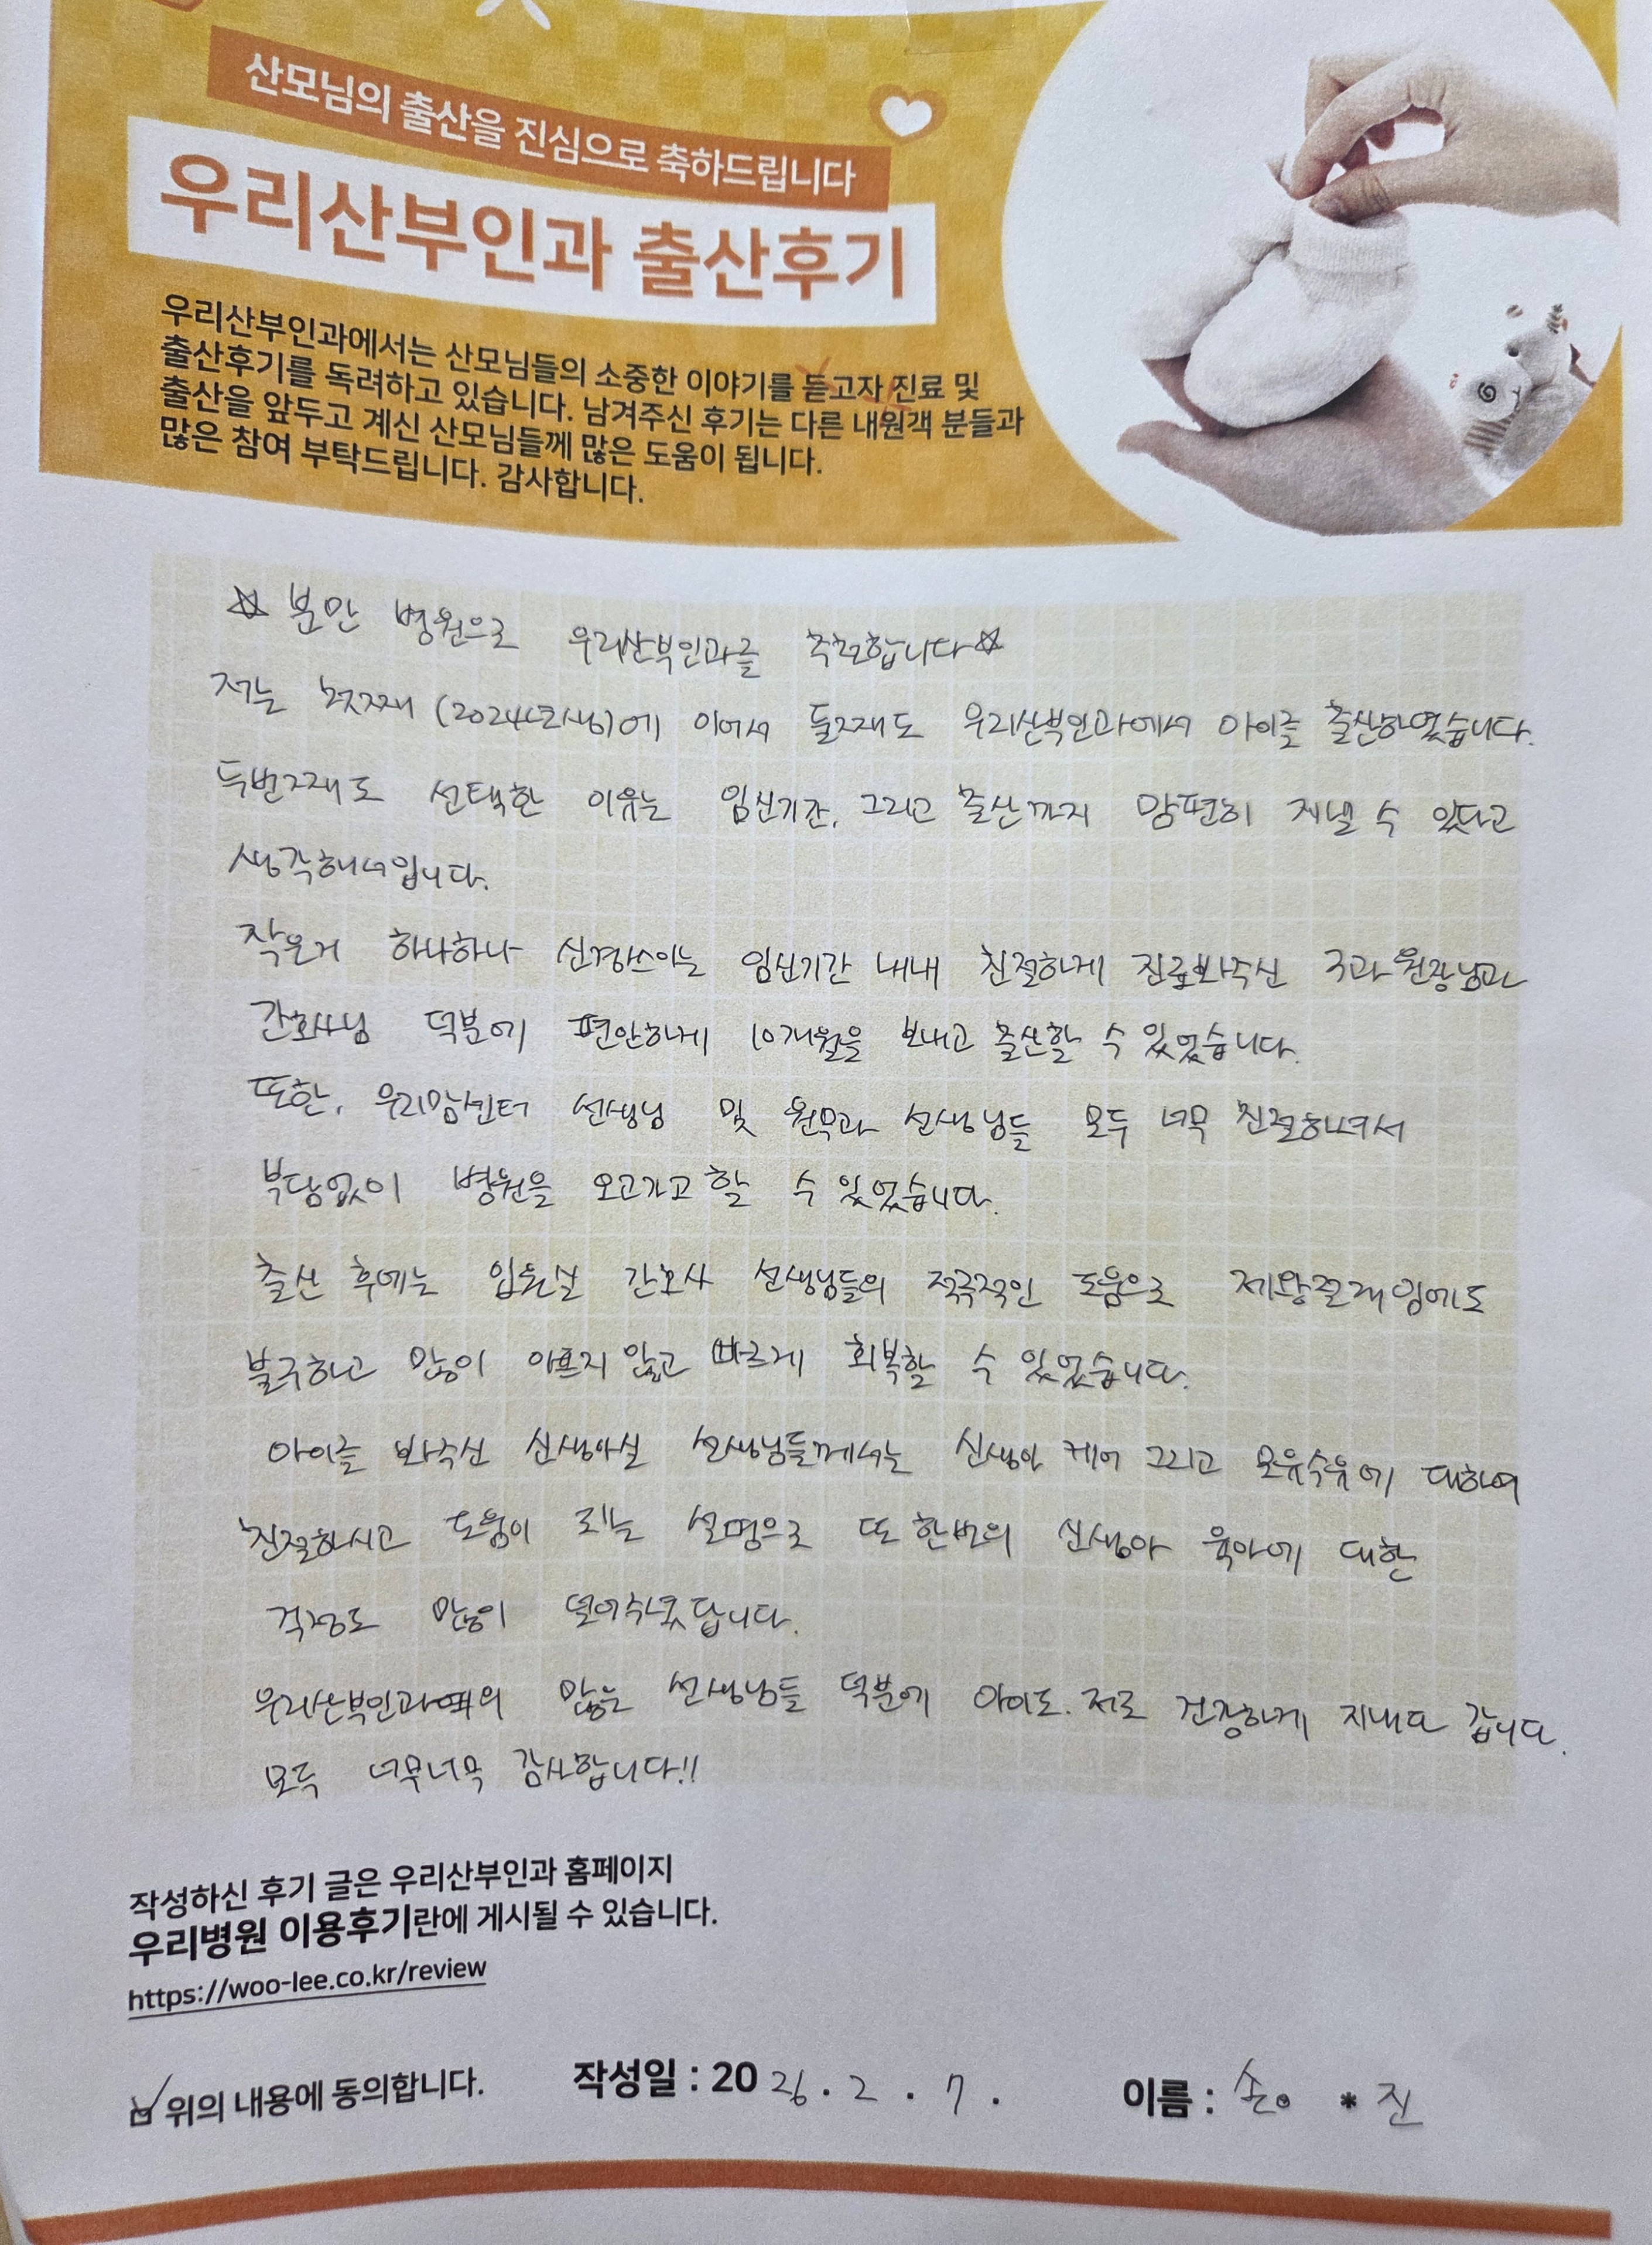 산모님의 출산을 진심으로 축하드립니다
우리산부인과 출산후기
우리산부인과에서는 산모님들의 소중한 이야기를 듣고자 진료 및
출산후기를 독려하고 있습니다. 남겨주신 후기는 다른 내원객 분들과
출산을 앞두고 계신 산모님들께 많은 도움이 됩니다.
많은 참여 부탁드립니다. 감사합니다.
☆ 분만 병원으로 우리산부인과를 추천합니다☆
저는 첫째 (2024년생)에 이어서 둘째도 우리산부인과에서 아이를 출산하였습니다.
두번째도 선택한 이유는 임신기간, 그리고 출산까지 맘편히 지낼 수 있다고
생각해서입니다.
작은거 하나하나 신경쓰이는 임신기간 내내 친절하게 진료봐주신 3과 원장님과
간호사님 덕분에 편안하게 10개월을 보내고 출산할 수 있었습니다.
또한, 우리맘센터 선생님 및 원무과 선생님들 모두 너무 친절하셔서
부담없이 병원을 오고가고 할 수 있었습니다.
출산 후에는 입원실 간호사 선생님들의 적극적인 도움으로 제왕절개임에도
불구하고 많이 아프지 않고 빠르게 회복할 수 있었습니다.
아이를 봐주신 신생아실 선생님들께서는 신생아 케어 그리고 모유수유에 대하여
친절하시고 도움이 되는 설명으로 또 한번의 신생아 육아에 대한
걱정도 많이 덜어주셨답니다.
우리산부인과의 많은 선생님들 덕분에 아이도. 저도 건강하게 지내다 갑니다.
모두 너무너무 감사합니다!!
작성하신 후기 글은 우리산부인과 홈페이지
우리병원 이용후기란에 게시될 수 있습니다.
https://woo-lee.co.kr/review
위의 내용에 동의합니다. 작성일 : 2026. 2. 7. 이름 : 손 * 진